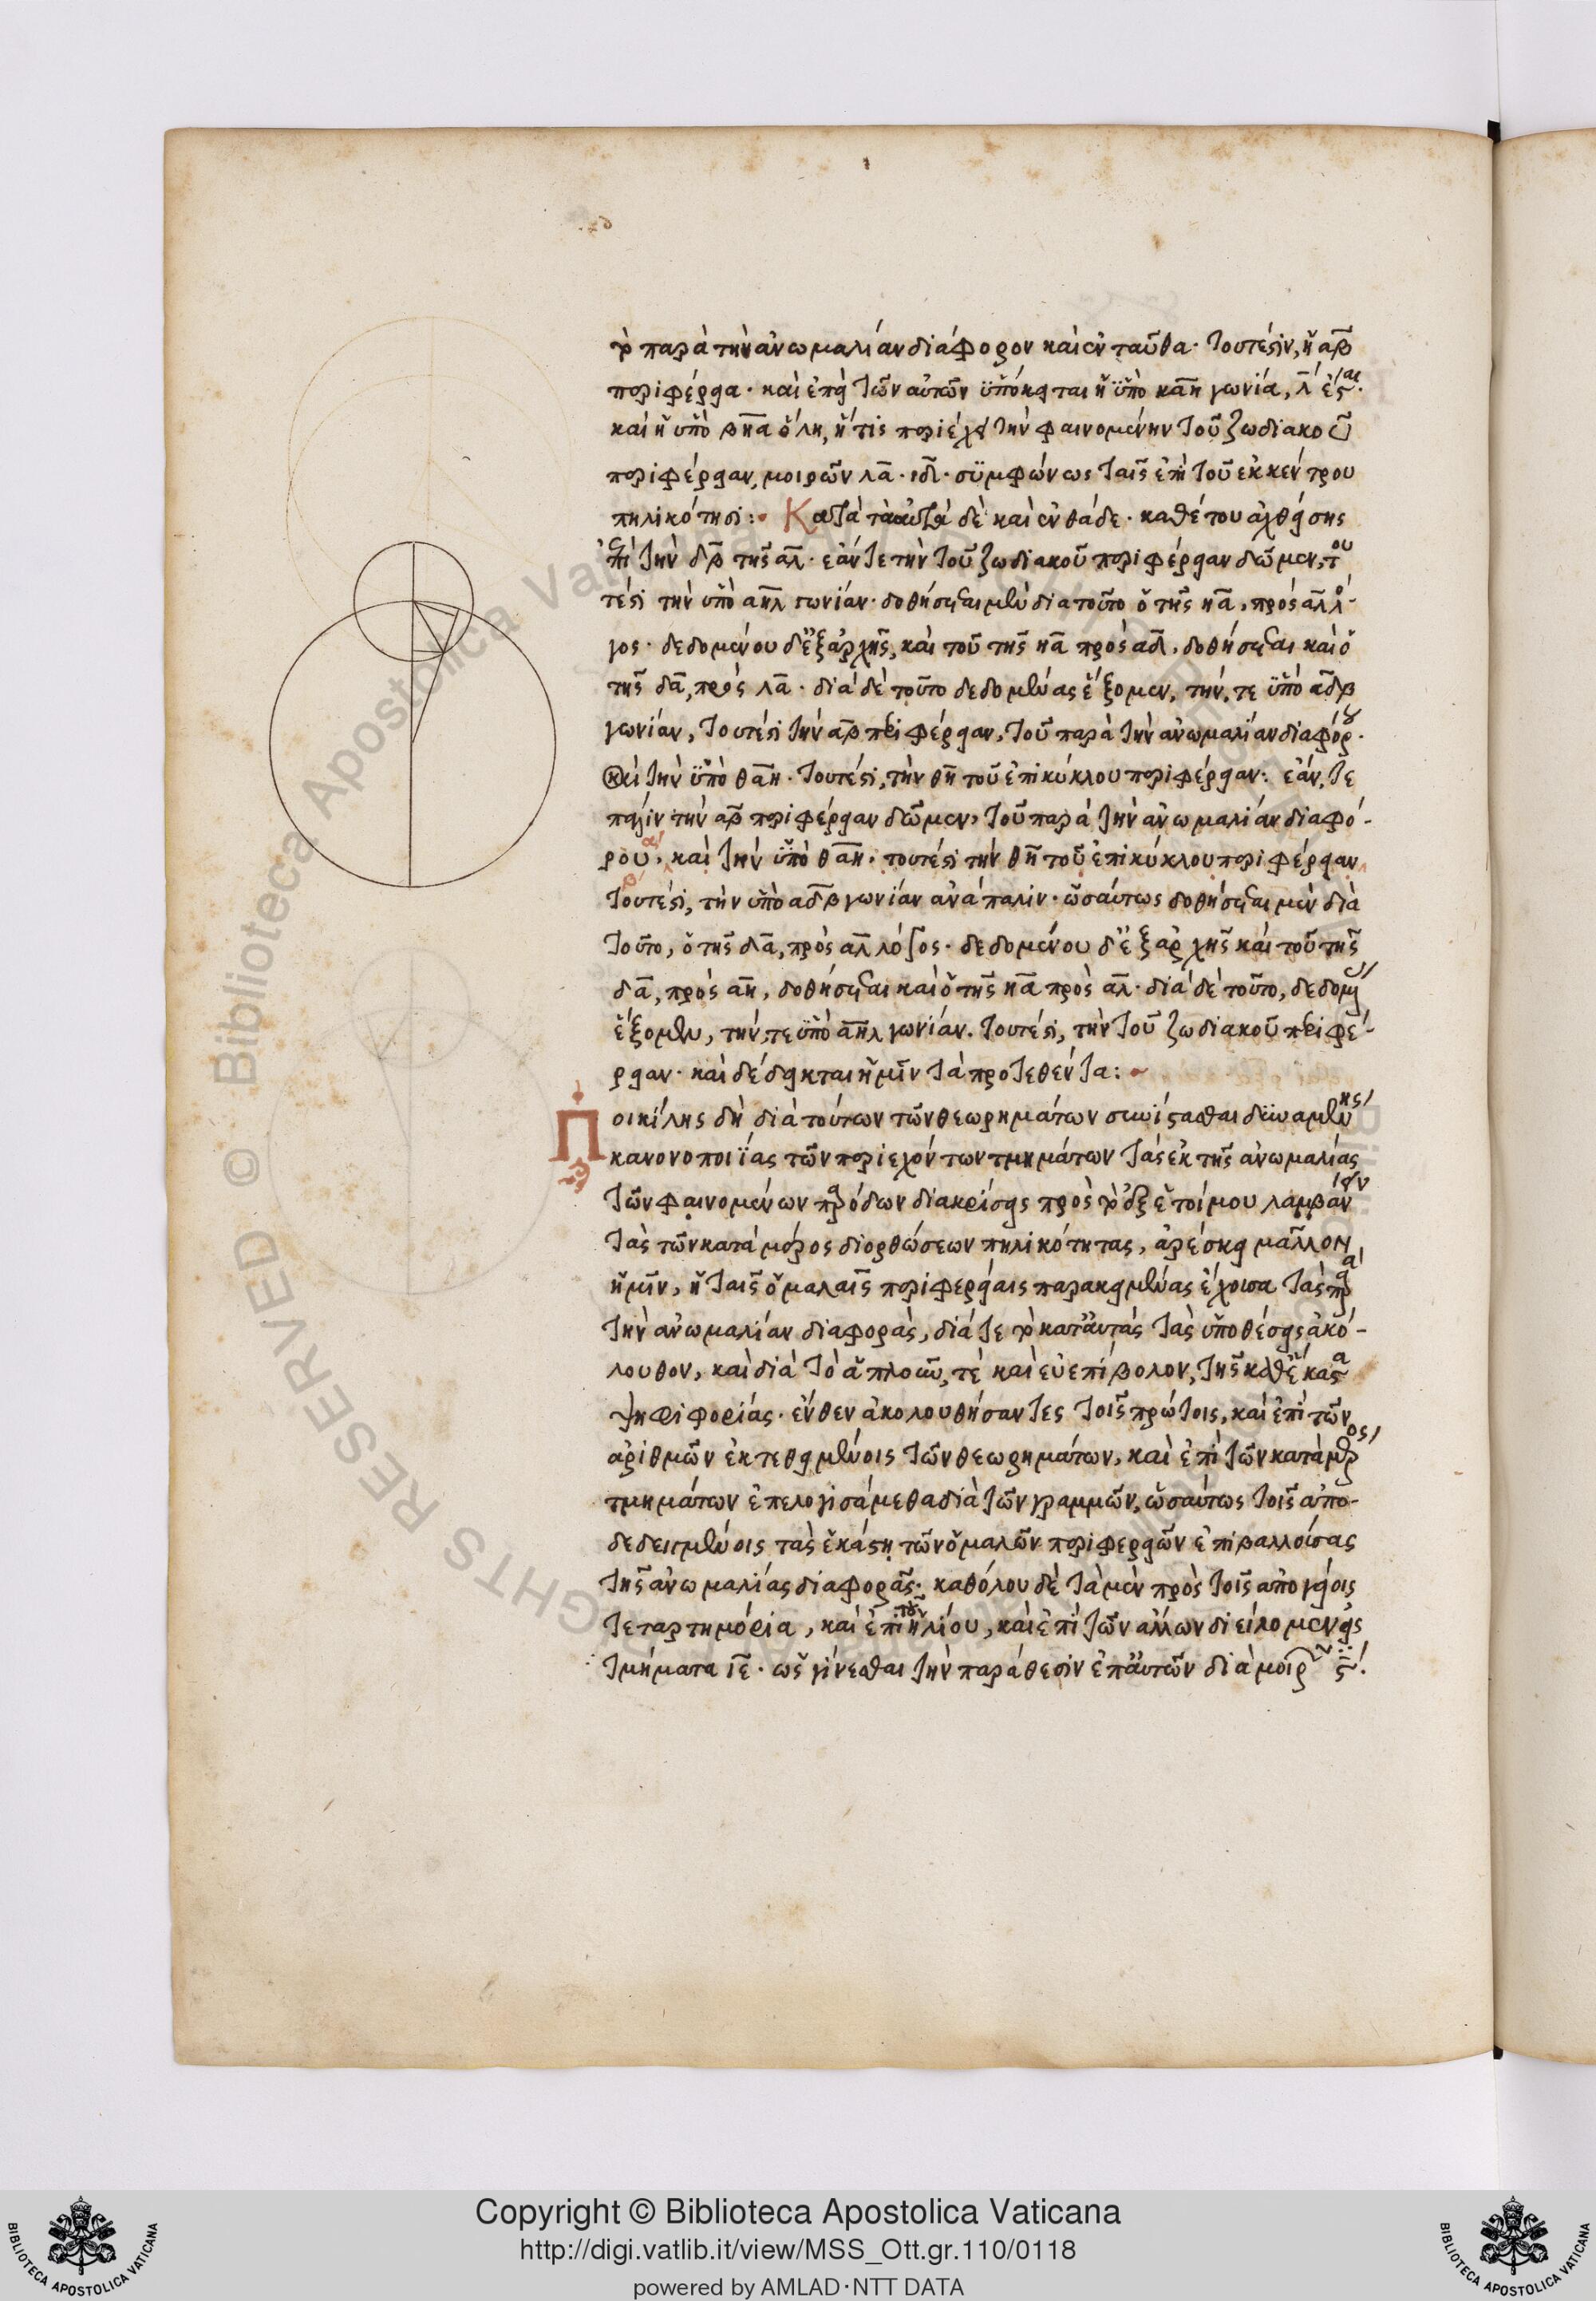 τὸ παρὰ τὴν ἀνωμαλίαν διάφορον καὶ ἐνταῦθα· τουτέστιν, ἡ αβ
περιφέρεια· καὶ ἐπεὶ τῶν αὐτῶν ὑπόκειται ἡ ὑπὸ κᾱη γωνία, λ̄ ἔσται·
καὶ ἡ ὑπὸ βη̄α ὅλη, ἥτις περιέχει τὴν φαινομένην τοῦ ζωδιακοῦ
περιφέρειαν, μοιρῶν λᾱ · ιδ̄ · συμφώνως ταῖς ἐπὶ τοῦ ἐκκέντρου
πηλικότησι:· Κατὰ τὰ αὐτὰ δὲ καὶ ἐνθάδε· καθέτου ἀχθείσης
ἐπὶ τὴν δβ̄ τῆς αλ̄· ἐάν τε τὴν τοῦ ζωδιακοῦ περιφέρειαν δῶμεν, του
τέστι τὴν ὑπὸ αηλ γωνίαν· δοθήσεται μὲν διὰ τοῦτο ὁ τῆς ηᾱ, πρὸς αλ̄ λό
γος· δεδομένου δ' ἐξ ἀρχῆς, καὶ τοῦ τῆς ηᾱ πρὸς αδ̄, δοθήσεται καὶ ὁ
τῆς δᾱ, πρὸς λᾱ · διὰ δὲ τοῦτο δεδομένας ἕξομεν, τήν, τε ὑπὸ αδ̄β
γωνίαν, τουτέστι τὴν αβ̄ περιφέρειαν, τοῦ παρὰ τὴν ἀνωμαλίαν διαφόρου·
καὶ τὴν ὑπὸ θᾱη · τουτέστι, τὴν θη̄ τοῦ ἐπικύκλου περιφέρειαν: ἐάν, τε
πάλιν τὴν αβ̄ περιφέρειαν δῶμεν, τοῦ παρὰ τὴν ἀνωμαλίαν διαφό-
ρου, καὶ τὴν ὑπὸ θᾱη · τουτέστι τὴν θη̄ τοῦ ἐπικύκλου περιφέρειαν
τουτέστι, τὴν ὑπὸ αδ̄β γωνίαν ἀνάπαλιν· ὡσαύτως δοθήσεται μὲν διὰ
τοῦτο, ὁ τῆς δᾱ, πρὸς αλ̄ λόγος· δεδομένου δ' ἐξ ἀρχῆς καὶ τοῦ τῆς
δᾱ, πρὸς αη̄, δοθήσεται καὶ ὁ τῆς ηᾱ πρὸς αλ̄· διὰ δὲ τοῦτο, δεδομένην
ἕξομεν, τήν, τε ὑπὸ αη̄λ γωνίαν. τουτέστι, τὴν τοῦ ζωδιακοῦ περιφέ-
ρειαν· καὶ δέδεικται ἡμῖν τὰ προτεθέντα:
Ποικίλης δὴ διὰ τούτων τῶν θεωρημάτων συνίστασθαι δυναμένης
κανονοποιΐας τῶν περιεχόντων τμημάτων τὰς ἐκ τῆς ἀνωμαλίας
τῶν φαινομένων παρόδων διακρίσεις πρὸς τὸ ἐξ ἑτοίμου λαμβάνειν
τὰς τῶν κατὰ μέρος διορθώσεων πηλικότητας, ἀρέσκει μᾶλλον
ἡμῖν, ἡ ταῖς ὁμαλαῖς περιφερείαις παρακειμένας ἔχουσα τὰς παρὰ
τὴν ἀνωμαλίαν διαφοράς, διά τε τὸ κατ' αὐτὰς τὰς ὑποθέσεις ἀκό-
λουθον, καὶ διὰ τὸ ἁπλοῦν, τε καὶ εὐεπίβολον, τῆς καθ' ἕκαστα
ψηφιφορίας· ἔνθεν ἀκολουθήσαντες τοῖς πρώτοις, καὶ ἐπὶ τῶν
ἀριθμῶν ἐκτεθειμένοις τῶν θεωρημάτων, καὶ ἐπὶ τῶν κατὰ μέρος
τμημάτων ἐπελογισάμεθα διὰ τῶν γραμμῶν, ὡσαύτως τοῖς ἀπο-
δεδειγμένοις τὰς ἑκάστῃ τῶν ὁμαλῶν περιφερειῶν ἐπιβαλλούσας
τῆς ἀνωμαλίας διαφοράς· καθόλου δὲ τὰ μὲν πρὸς τοῖς ἀπογείοις
τεταρτημόρια, καὶ ἐπὶ τοῦ ἡλίου, καὶ ἐπὶ τῶν ἄλλων διείλομεν εἰς
τμήματα ιε̄ · ὡς γίνεσθαι τὴν παράθεσιν ἐπ' αὐτῶν διὰ μοιρῶν ς̄.
Copyright © Biblioteca Apostolica Vaticana
http://digi.vatlib.it/view/MSS_Ott.gr.110/0118
powered by AMLAD·NTT DATA
BIBLIOTECA APOSTOLICA VATICANA
BIBLIOTECA APOSTOLICA VATICANA